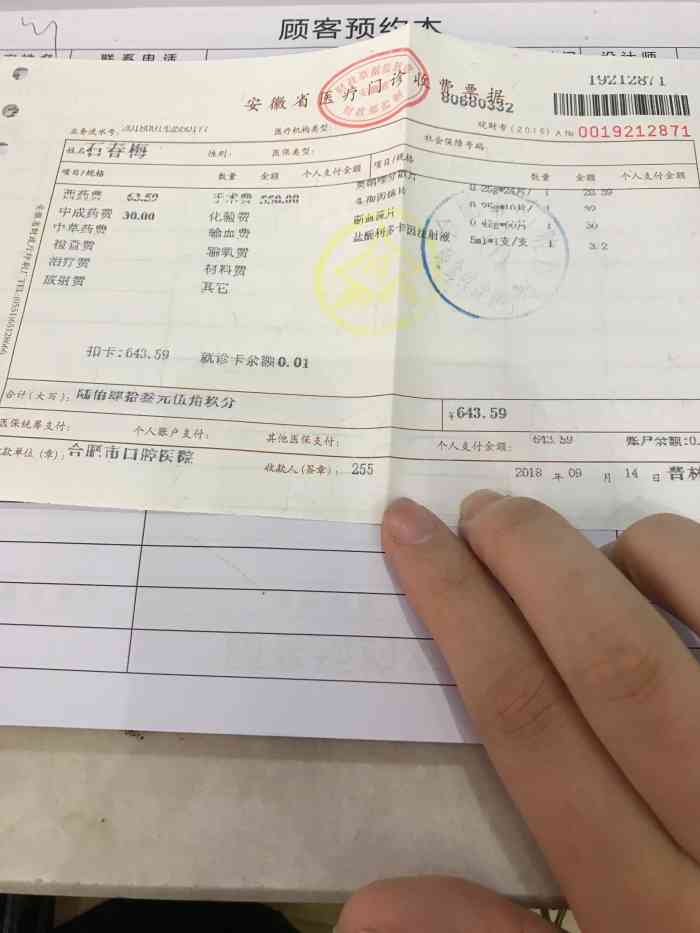 顾客预约本
联系电话
设计师
19212871
安徽省医疗门诊收费票据
80680332
皖财专(2015)A № 0019212871
业务流水号:
医疗机构类型:
社会保障号码:
姓名: 石春梅 性别: 医保类型:
项目/规格 数量 金额 个人支付金额 项目/规格 数量 金额 个人支付金额
西药费 63.59 手术费 550.00
中成药费 30.00 化验费
中草药费 输血费
检查费 输氧费
治疗费 材料费
放射费 其它
0.25g*24片/ 1
1 30
盐酸利多卡因注射液 5ml*1支/支 1 3.2
扣卡:643.59 就诊卡余额0.01
合计(大写): 陆佰肆拾叁元伍角玖分 ¥643.59
医保统筹支付: 个人账户支付: 其他医保支付: 个人支付金额: 643.59 账户余额:0.
收款单位(章): 合肥市口腔医院 收款人(签章): 255 2018 年 09 月 14 日